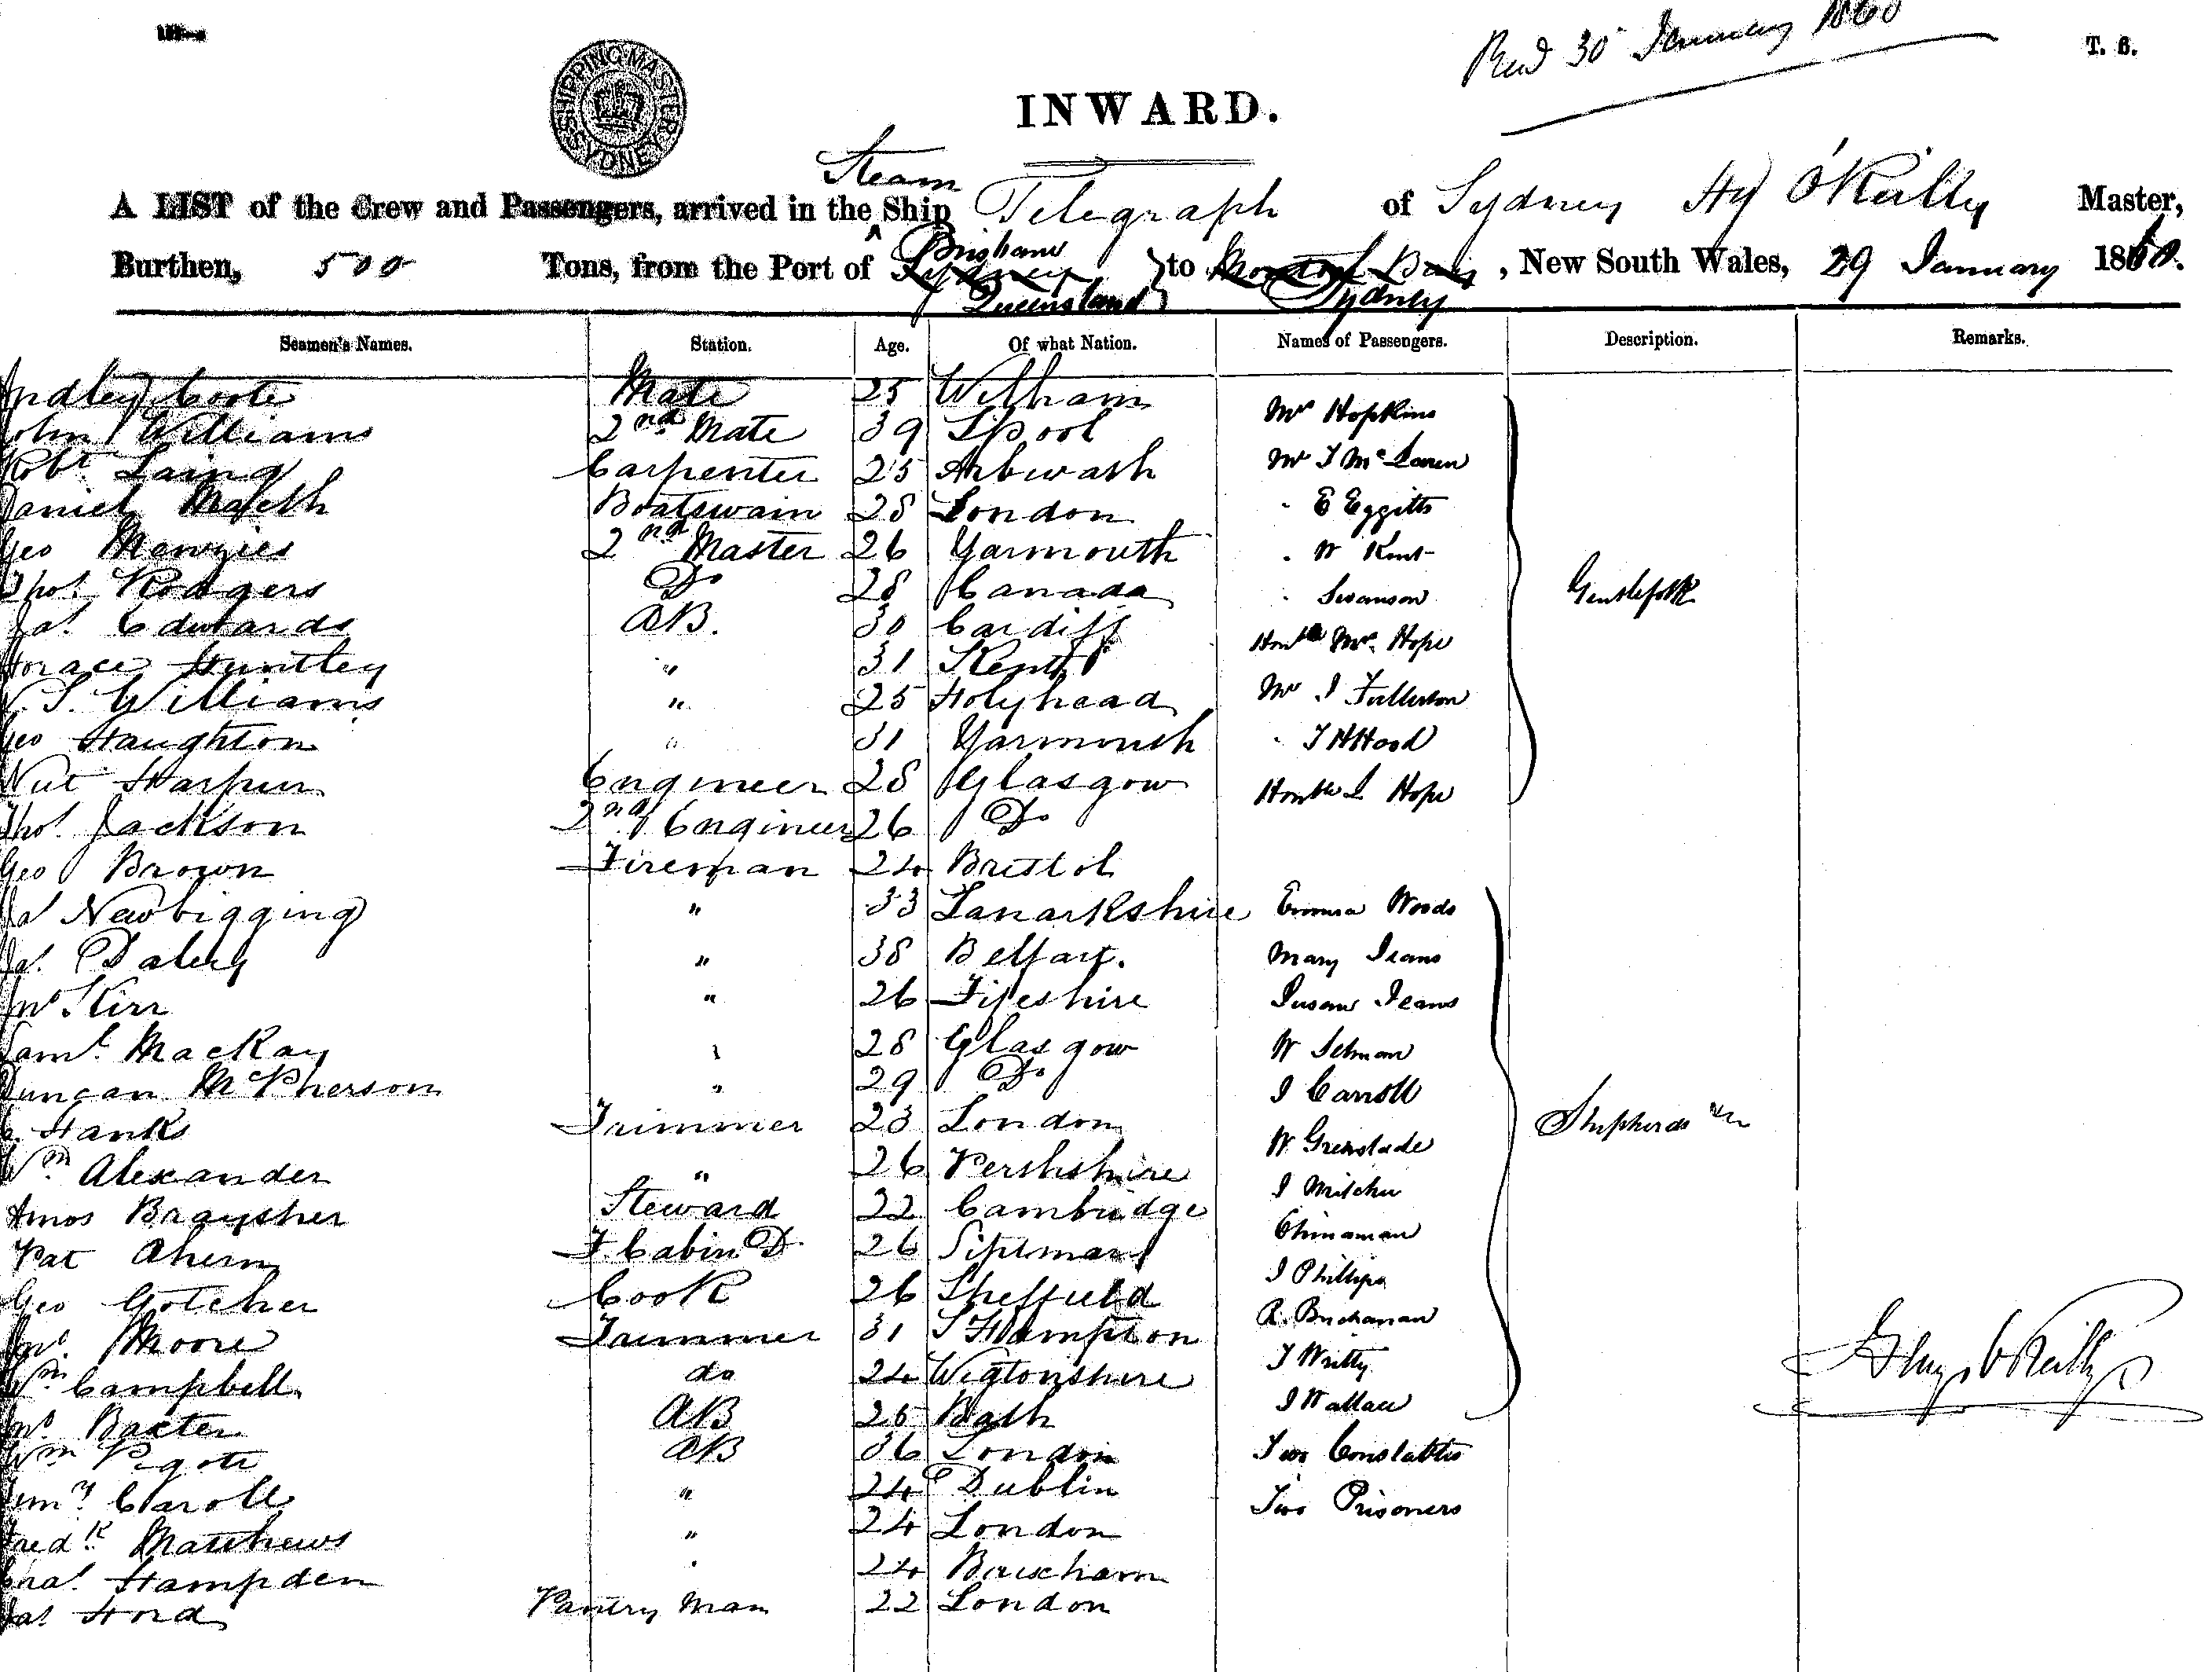 Recd 30 January 1860
T. 6.
SHIPPING MASTER SYDNEY
INWARD.
Steam
A LIST of the Crew and Passengers, arrived in the Ship Telegraph of Sydney Hy O'Reilly Master,
Brisbane
Burthen, 500 Tons, from the Port of Sydney to Moreton Bay, New South Wales, 29 January 1860.
Queensland Sydney
Seamen's Names. Station. Age. Of what Nation. Names of Passengers. Description. Remarks.
Coote Mate 25 Witham Mr Hopkins
John Williams 2nd Mate 39 L'pool Mr J McLaren
Robt Laing Carpenter 25
Daniel Boatswain 28 London " E Eggitts
Geo Menzies 2nd Master 26 Yarmouth " W Kent
Thos Rodgers Do 28 Canada " Swanson Gentlefolk
Jas Edwards AB. 30 Cardiff Honble Mr Hope
Horace Huntley " 31 Kent Mr J Fullerton
Williams " 25 Holyhead
Geo Haughton " 31 Yarmouth " T H Hood
Harpur Engineer 28 Glasgow Honble L Hope
Thos Jackson 2nd Engineer 26 Do
Geo Brown Fireman 24 Bristol
Js Newbigging " 33 Lanarkshire Emma Woods
Js. Daley " 38 Belfast. Mary Jeans
Jno Kirr " 26 Fifeshire Susan Jeans
Saml MacKay " 28 Glasgow W Selman
Duncan McPherson " 29 Do J Carroll
Hanks Trimmer 23 London W Greenslade Shepherds &c
Wm Alexander " 26 Perthshire J
Amos Braysher Steward 22 Cambridge Chinaman
Pat Ahern F. Cabin Do 26 J Phillips
Geo Gotcher Cook 26 Sheffield R. Buchanan
Jno. Moore Trimmer 31 S Hampton
Wm Campbell do 24 Wigtonshire J Wallace
Jno Baxter AB 25 Bath
Wm Pigott AB 36 London Two Constables
Timy Caroll " 24 Dublin Two Prisoners
Fredk Matthews " 24 London
Chas. Hampden " 24
Jas Ford Pantry Man 22 London
Hy O'Reilly